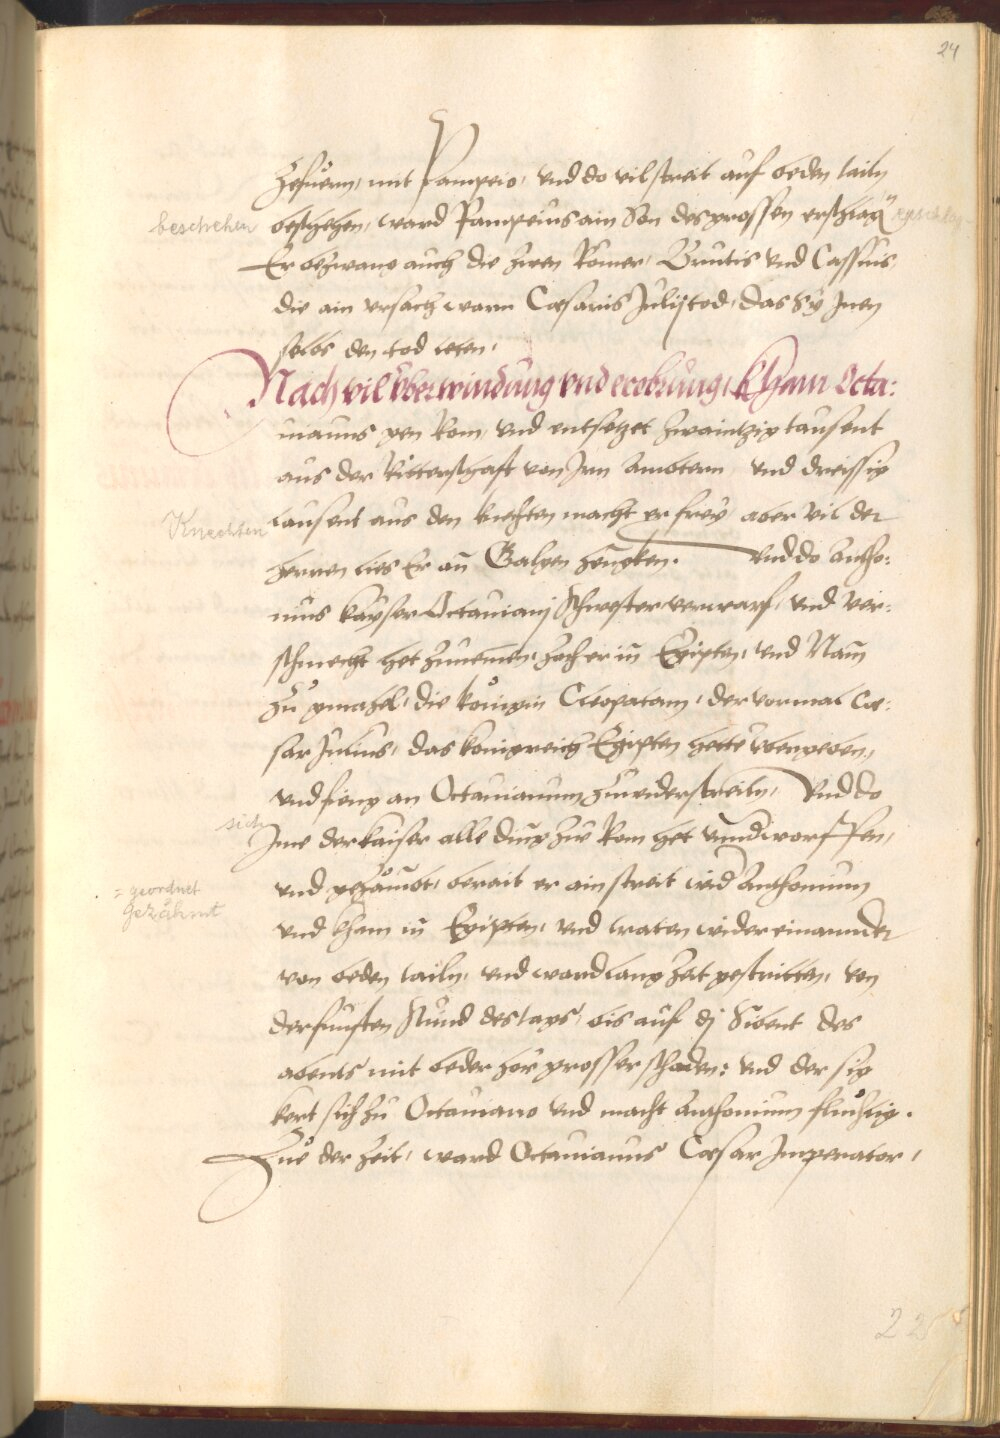 24
zefüern, mit Pampeio, vnd do vil streit auf beden tailn
beschehen
beschehen, ward Pampeius ain Son des grossen erschlagn
Er bezwang auch die zwen Romer, Brutis vnd Cassius
die ain vrsach warn Cæsaris Julij tod, das Sy Jnen
selbs den tod teten,
Nach vil vberwindung vnd erobrung, kham Octa:
uianus gen Rom, vnd entsetzet zwaintzig tausent
aus der Ritterschaft von Jrn Ambtern, vnd dreissig
Knechten
tausent aus den knechten macht er frey, aber vil der
herren lies Er an Galgen hengken. Vnd do Antho:
nius kayser Octauianj schwester verwarf, vnd ver:
schmecht het zunemen, zoch er in Egipten, vnd Nam
zu gmahel, die kônigin Cleopatam, der vormal Cæ:
sar Julius, das konigreich Egipten hette vbergeben,
vnd fieng an Octauianum zuwiderstreitn, Vnd do
sich
Jme der kaiser alle ding zu Rom het vnndworffen,
= geordnet
gezähmt
vnd gezâmbt, berait er ain streit wid Anthonium
vnd kham in Egipten, vnd traten wider einannder
von beden tailn, vnd ward lang zeit gestritten, von
der funften stund des tags, bis auf dj Sibent des
abents mit beder her grosser schaden: vnd der sig
kert sich zu Octauiano vnd macht Anthonium fluchtig.
Zue der zeit, ward Octauianus Cæsar Imperator,
225